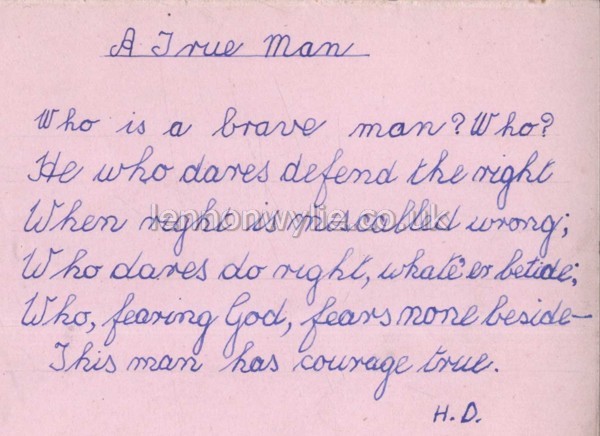 A True Man
Who is a brave man? Who?
He who dares defend the right
When right is miscalled wrong;
Who dares do right, whate'er betide;
Who, fearing God, fears none beside—
This man has courage true.
H.D.
lennonwylie.co.uk